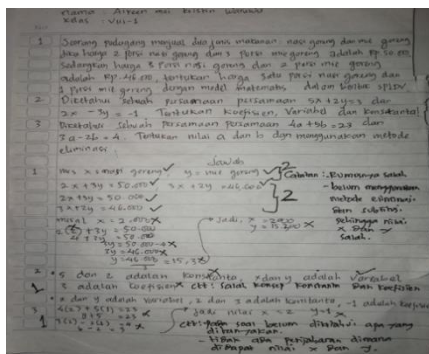 nama :
kelas : VIII-1
1 Seorang pedagang menjual dua jenis makanan: nasi goreng dan mie goreng
jika harga 2 porsi nasi goreng dan 3 porsi mie goreng adalah Rp.50.000
sedangkan harga 3 porsi nasi goreng dan 2 porsi mie goreng
adalah Rp.46.000, tentukan harga satu porsi nasi goreng dan
1 porsi mie goreng dengan model matematis dalam bentuk SPLDV
2 Diketahui sebuah persamaan persamaan 5x + 2y = 3 dan
2x - 3y = -1 Tentukan koefisien, Variabel dan konstanta!
3 Diketahui sebuah persamaan persamaan 4a + 5b = 23 dan
7a - 2b = 4. Tentukan nilai a dan b dgn menggunakan metode
eliminasi.
Jawab
1 x = nasi goreng y = mie goreng 2 Catatan : Rumusnya salah
2x + 3y = 50.000 3x + 2y = 46.000 - belum menggunakan
2x + 3y = 50.000 2 metode eliminasi
3x + 2y = 46.000 dan subtitusi
misal x = 2.000 * Jadi, x = 2000 sehingga nilai
+ 3y = 50.000 y = x dan y
4 + 3y = 50.000 salah.
3y = 50.000 - 4
3y = 46.000
y = 46.000
2 • 5 dan 2 adalah konstanta, x dan y adalah variabel
1 3 adalah koefisien ctt: salah konsep konstanta dan koefisien
• x dan y adalah variabel, 2 dan 3 adalah konstanta, -1 adalah koefisien
3 4(2) + 5(1) = 23 * Jadi nilai x = 2 y = 1
1 8 + 5 = 23
ctt: saat belum diketahui apa yang
ditanyakan.
- tidak ada penjabaran dimana
didapat nilai x dan y.